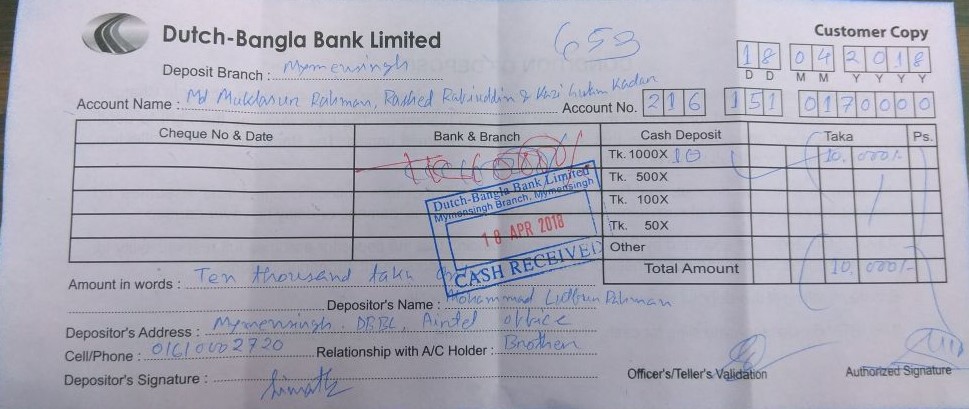 653
Customer Copy
Dutch-Bangla Bank Limited
18 04 2018
D D M M Y Y Y Y
Deposit Branch : Mymensingh
Account Name : Md Rahman, Rashed & Kazi Kadar
Account No. 216 151 0170000
Cheque No & Date Bank & Branch Cash Deposit Taka Ps.
Tk. 1000X 10 10,000/-
Tk. 500X
Tk. 100X
Tk. 50X
Other
Total Amount 10,000/-
Dutch-Bangla Bank Limited
Mymensingh Branch, Mymensingh
18 APR 2018
CASH RECEIVED
Amount in words : Ten thousand taka only
Depositor's Name : Mohammad Rahman
Depositor's Address : Mymensingh. DBBL, Airtel office
Cell/Phone : 01610002720 Relationship with A/C Holder : Brother
Depositor's Signature :
Officer's/Teller's Validation Authorized Signature